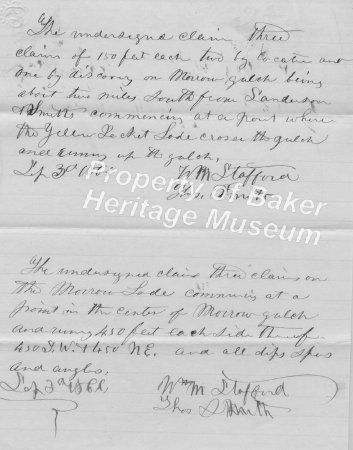 The undersigned claim three
claims of 150 feet each two by location and
one by discovery on Morrow gulch being
about two miles South from Sanderson
& Smiths commencing at a point where
the Yellow Jacket Lode crosses the gulch
and runing up the gulch.
Sep 3d
Wm Stafford
Smith
Property of Baker
Heritage Museum
The undersigned claim three claims on
the Morrow Lode commencing at a
point in the center of Morrow gulch
and runing 450 feet each side thereof
450 S.W. & 450 NE. and all dips spurs
and angles.
Sep 3d 1866
Wm M Stafford
Thos Smith